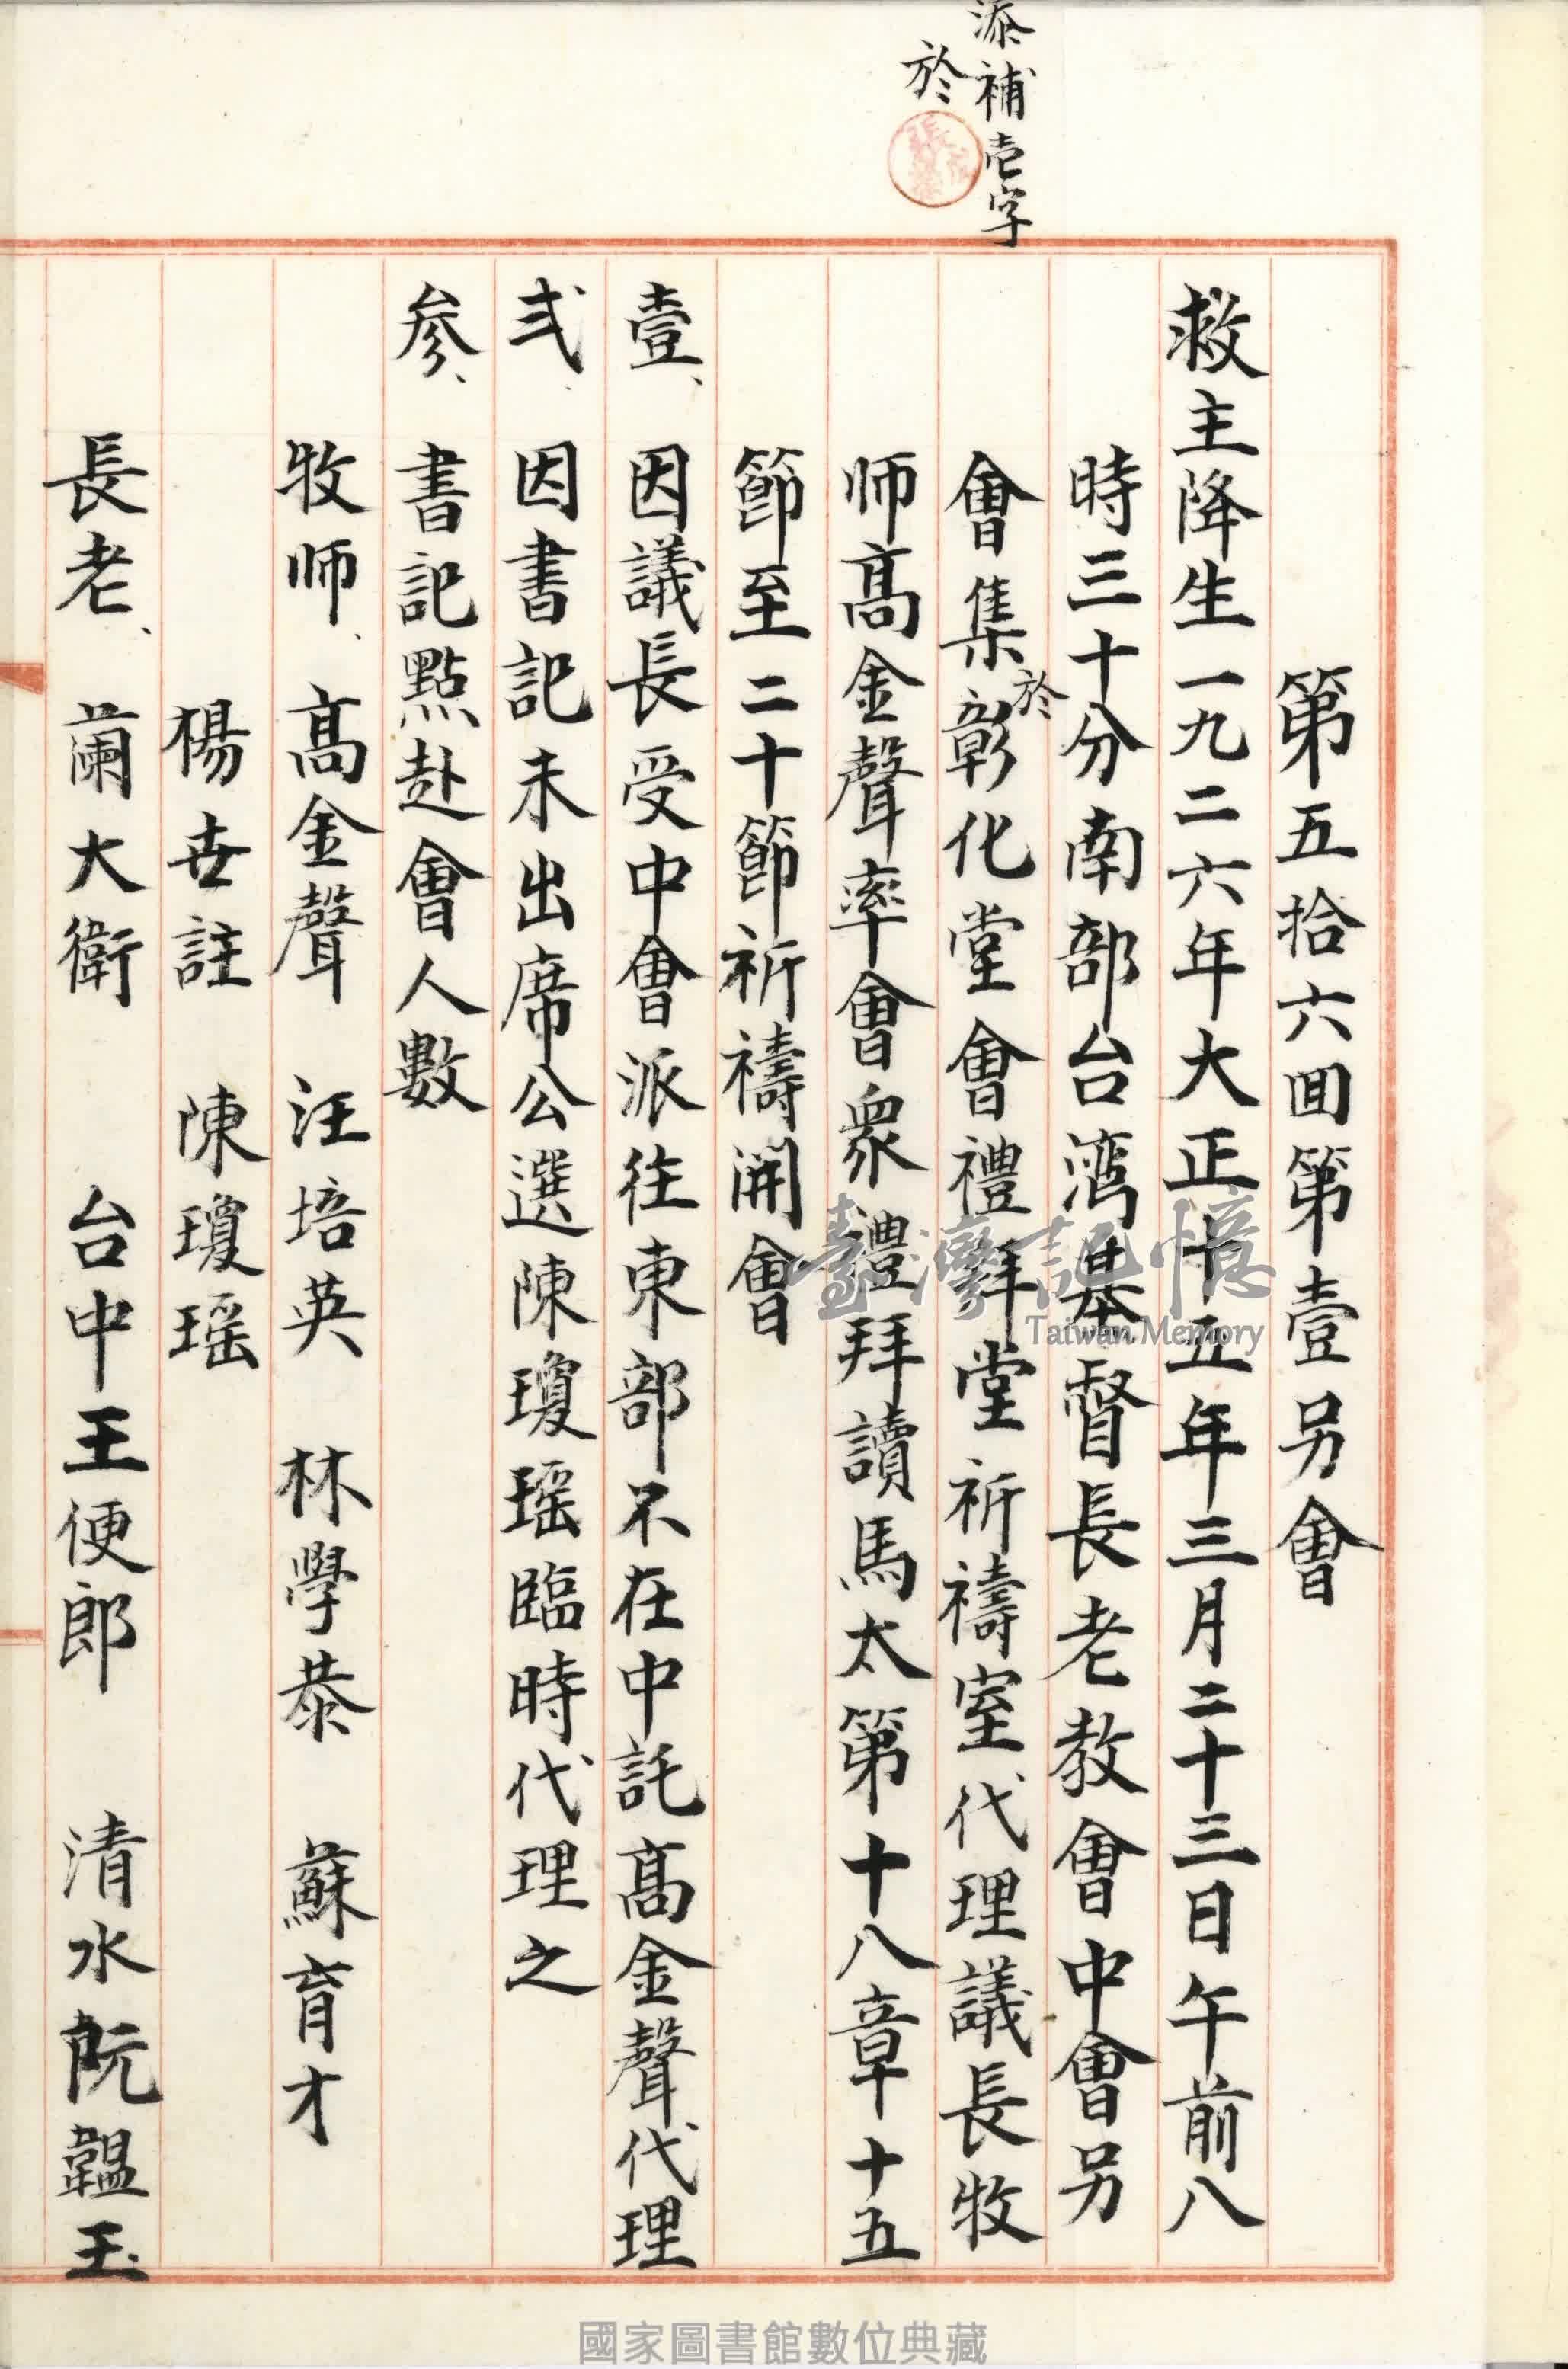 添補壱字
於
第五拾六囬第壹另會
救主降生一九二六年大正十五年三月二十三日午前八
時三十分南部台湾基督長老教會中會另
會集於彰化堂會禮拜堂祈禱室代理議長牧
师高金聲率會衆禮拜讀馬太第十八章十五
節至二十節祈禱開會
壹、因議長受中會派往東部不在中託高金聲代理
弍、因書記未出席公選陳瓊瑶臨時代理之
参、書記點赴會人數
牧师、高金聲 汪培英 林學恭 蘇育才
楊世註 陳瓊瑶
長老、蘭大衛 台中王便郎 清水阮韞玉
臺灣記憶
Taiwan Memory
國家圖書館數位典藏